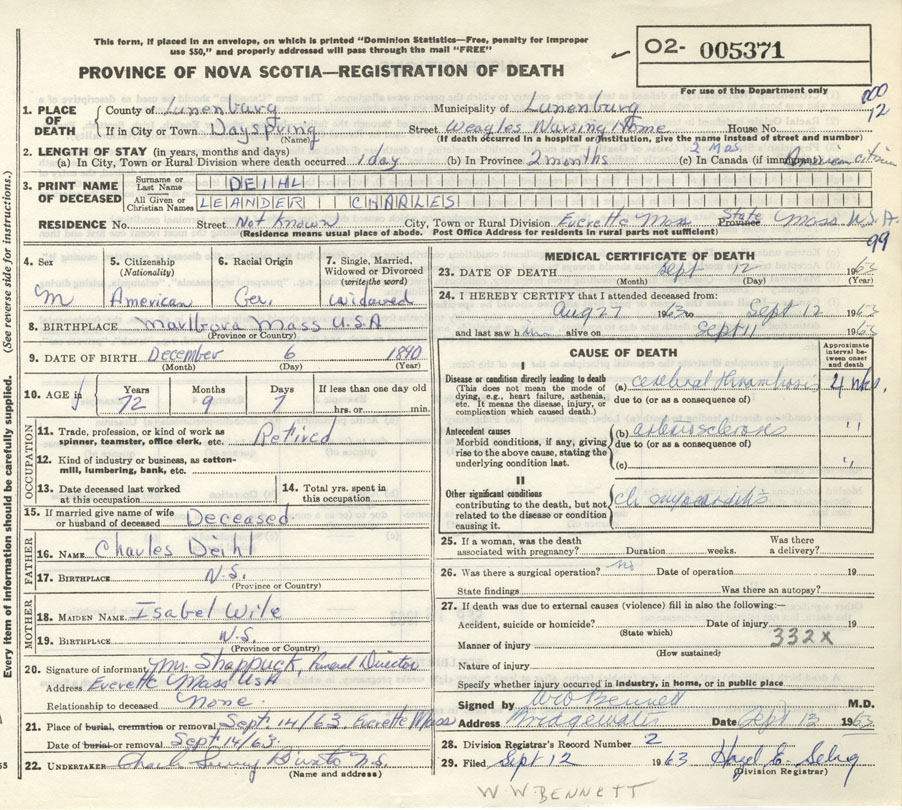 This form, if placed in an envelope, on which is printed "Dominion Statistics—Free, penalty for improper
use $50," and properly addressed will pass through the mail "FREE"
02- 005371
PROVINCE OF NOVA SCOTIA—REGISTRATION OF DEATH
For use of the Department only
1. PLACE OF DEATH County of Lunenburg Municipality of Lunenburg
If in City or Town Dayspring Street Weagles Nursing Home House No.
(Name) (If death occurred in a hospital or institution, give the name instead of street and number)
2. LENGTH OF STAY (in years, months and days) 2 mos.
(a) In City, Town or Rural Division where death occurred 1 day (b) In Province 2 months (c) In Canada (if immigrant) American citizen
3. PRINT NAME OF DECEASED Surname or Last Name DEIHL
All Given or Christian Names LEANDER CHARLES
RESIDENCE No. Street Not Known City, Town or Rural Division Everette Mass State Province Mass U.S.A.
(Residence means usual place of abode. Post Office Address for residents in rural parts not sufficient)
99
4. Sex 5. Citizenship (Nationality) 6. Racial Origin 7. Single, Married, Widowed or Divorced (write the word)
M American Ger. widowed
8. BIRTHPLACE Marlboro Mass U.S.A
(Province or Country)
9. DATE OF BIRTH December 6 1890
(Month) (Day) (Year)
10. AGE in Years Months Days If less than one day old
72 9 7 hrs. or min.
OCCUPATION
11. Trade, profession, or kind of work as spinner, teamster, office clerk, etc. Retired
12. Kind of industry or business, as cotton-mill, lumbering, bank, etc.
13. Date deceased last worked at this occupation 14. Total yrs. spent in this occupation
15. If married give name of wife or husband of deceased Deceased
FATHER
16. NAME Charles Deihl
17. BIRTHPLACE N.S.
(Province or Country)
MOTHER
18. MAIDEN NAME Isabel Wile
19. BIRTHPLACE N.S.
(Province or Country)
20. Signature of informant Mr. Shappuck, Funeral Director
Address Everette Mass USA
Relationship to deceased None
21. Place of burial, cremation or removal Sept 14/63 Everette Mass
Date of burial or removal Sept 14/63
22. UNDERTAKER N.S.
(Name and address)
MEDICAL CERTIFICATE OF DEATH
23. DATE OF DEATH Sept 12 1963
(Month) (Day) (Year)
24. I HEREBY CERTIFY that I attended deceased from
Aug 27 1963 to Sept 12 1963
and last saw him alive on Sept 11 1963
CAUSE OF DEATH
Approximate interval between onset and death
I
Disease or condition directly leading to death (a) cerebral thrombosis 4 wks.
(This does not mean the mode of dying, e.g., heart failure, asthenia, etc. It means the disease, injury, or complication which caused death.)
due to (or as a consequence of)
Antecedent causes (b) arteriosclerosis "
Morbid conditions, if any, giving rise to the above cause, stating the underlying condition last.
due to (or as a consequence of)
(c) "
II
Other significant conditions ch myocarditis
contributing to the death, but not related to the disease or condition causing it.
25. If a woman, was the death associated with pregnancy? Duration weeks. Was there a delivery?
26. Was there a surgical operation? no Date of operation 19
State findings Was there an autopsy?
27. If death was due to external causes (violence) fill in also the following:—
Accident, suicide or homicide? Date of injury 19
(State which)
332X
Manner of injury
(How sustained)
Nature of injury
Specify whether injury occurred in industry, in home, or in public place
Signed by WW Bennett M.D.
Address Bridgewater Date Sept 13 1963
28. Division Registrar's Record Number 2
29. Filed Sept 12 1963 Hazel E. Selig
(Division Registrar)
W W BENNETT
(See reverse side for instructions.)
Every item of information should be carefully supplied.